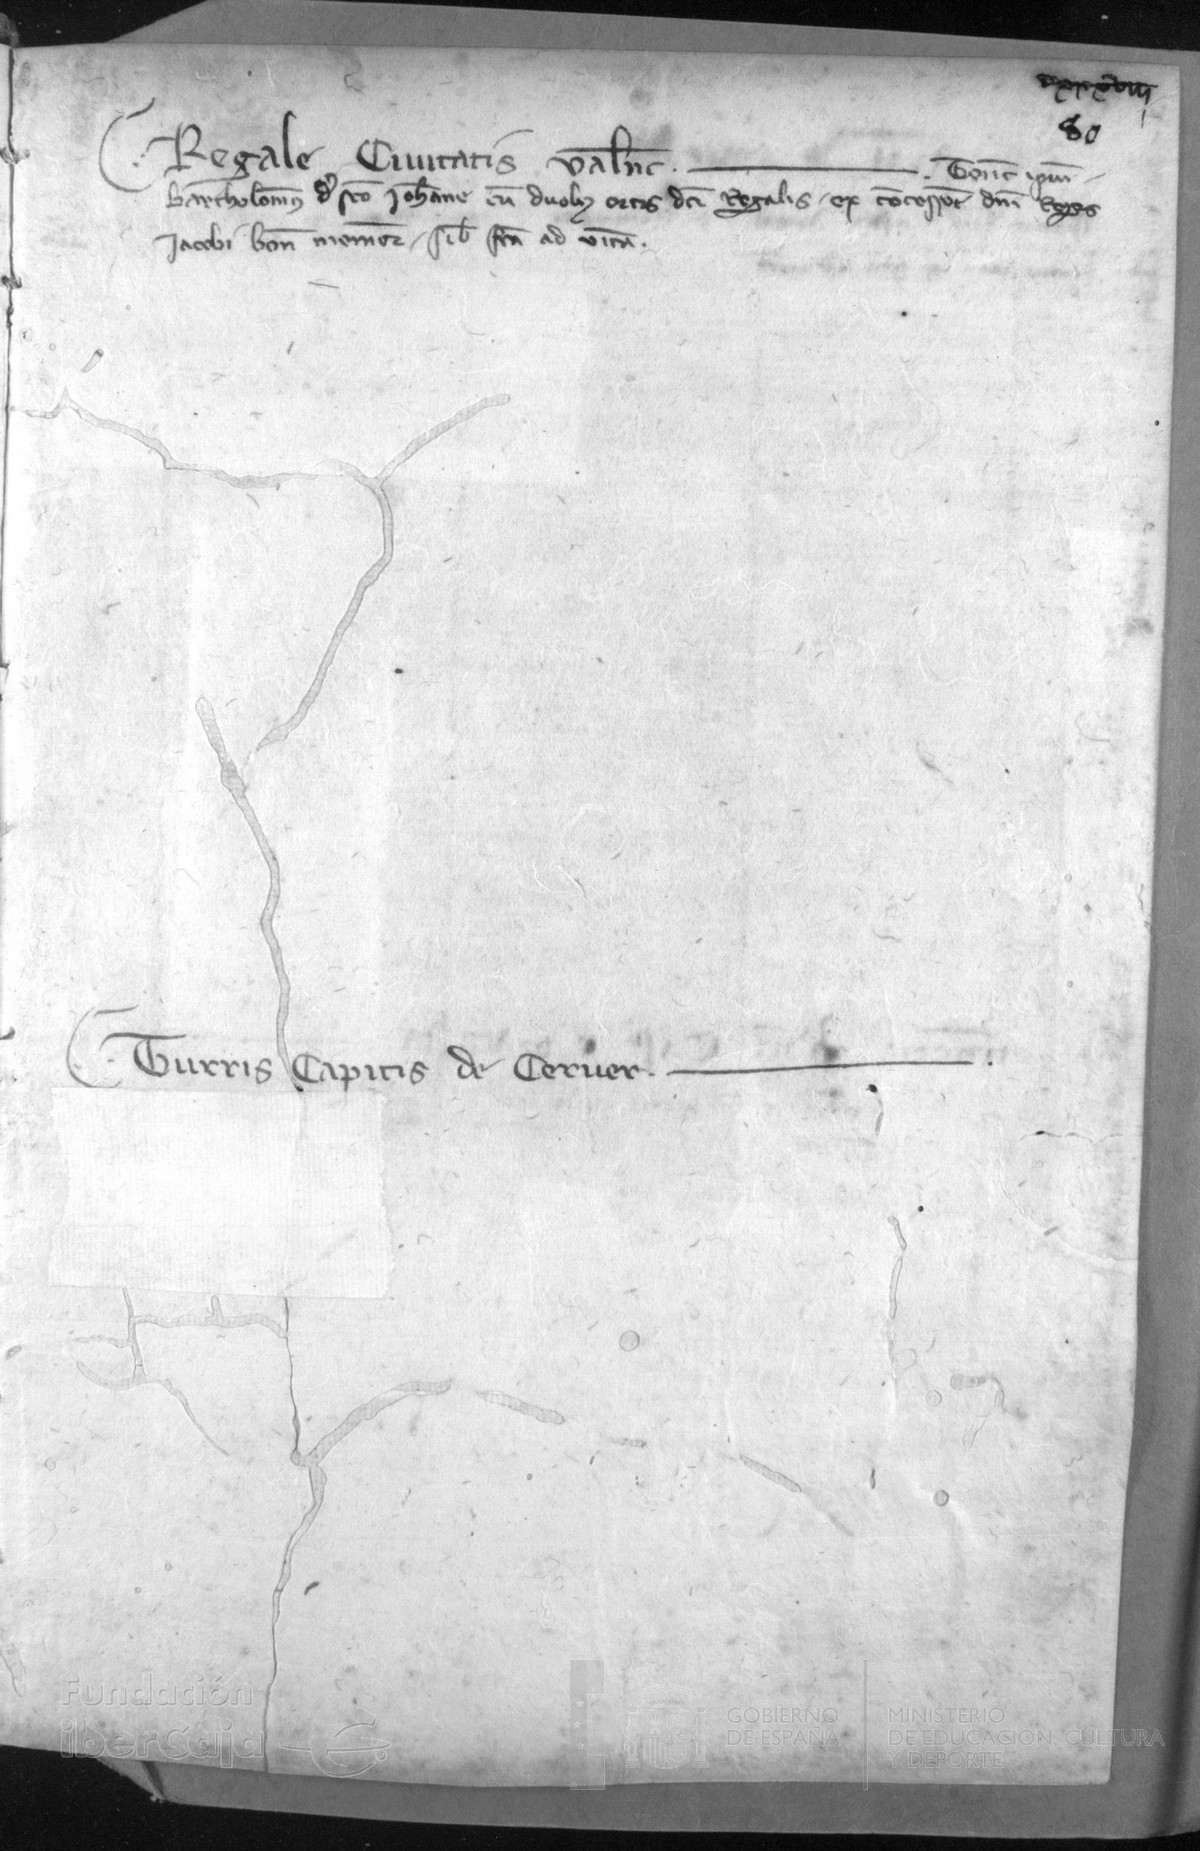 80
Regale Ciuitatis Valnc. Tenet ipm
Bartholomeus de sco Johane cu duobus ortis dci Regalis ex concessione dni Reges
Jacobi bon memor sib fca ad vita.
Turris Capitis de Ceruer.
Fundación
iberCaja
GOBIERNO
DE ESPAÑA
MINISTERIO
DE EDUCACIÓN, CULTURA
Y DEPORTE